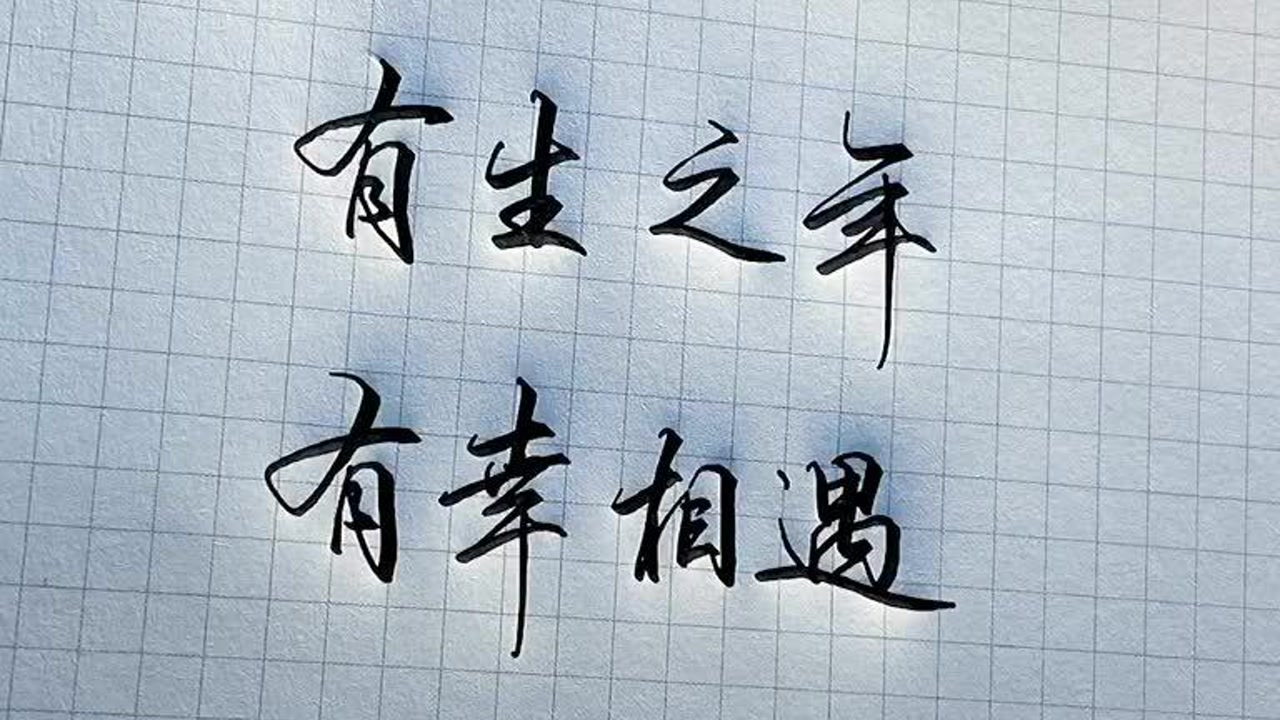 有生之年
有幸相遇